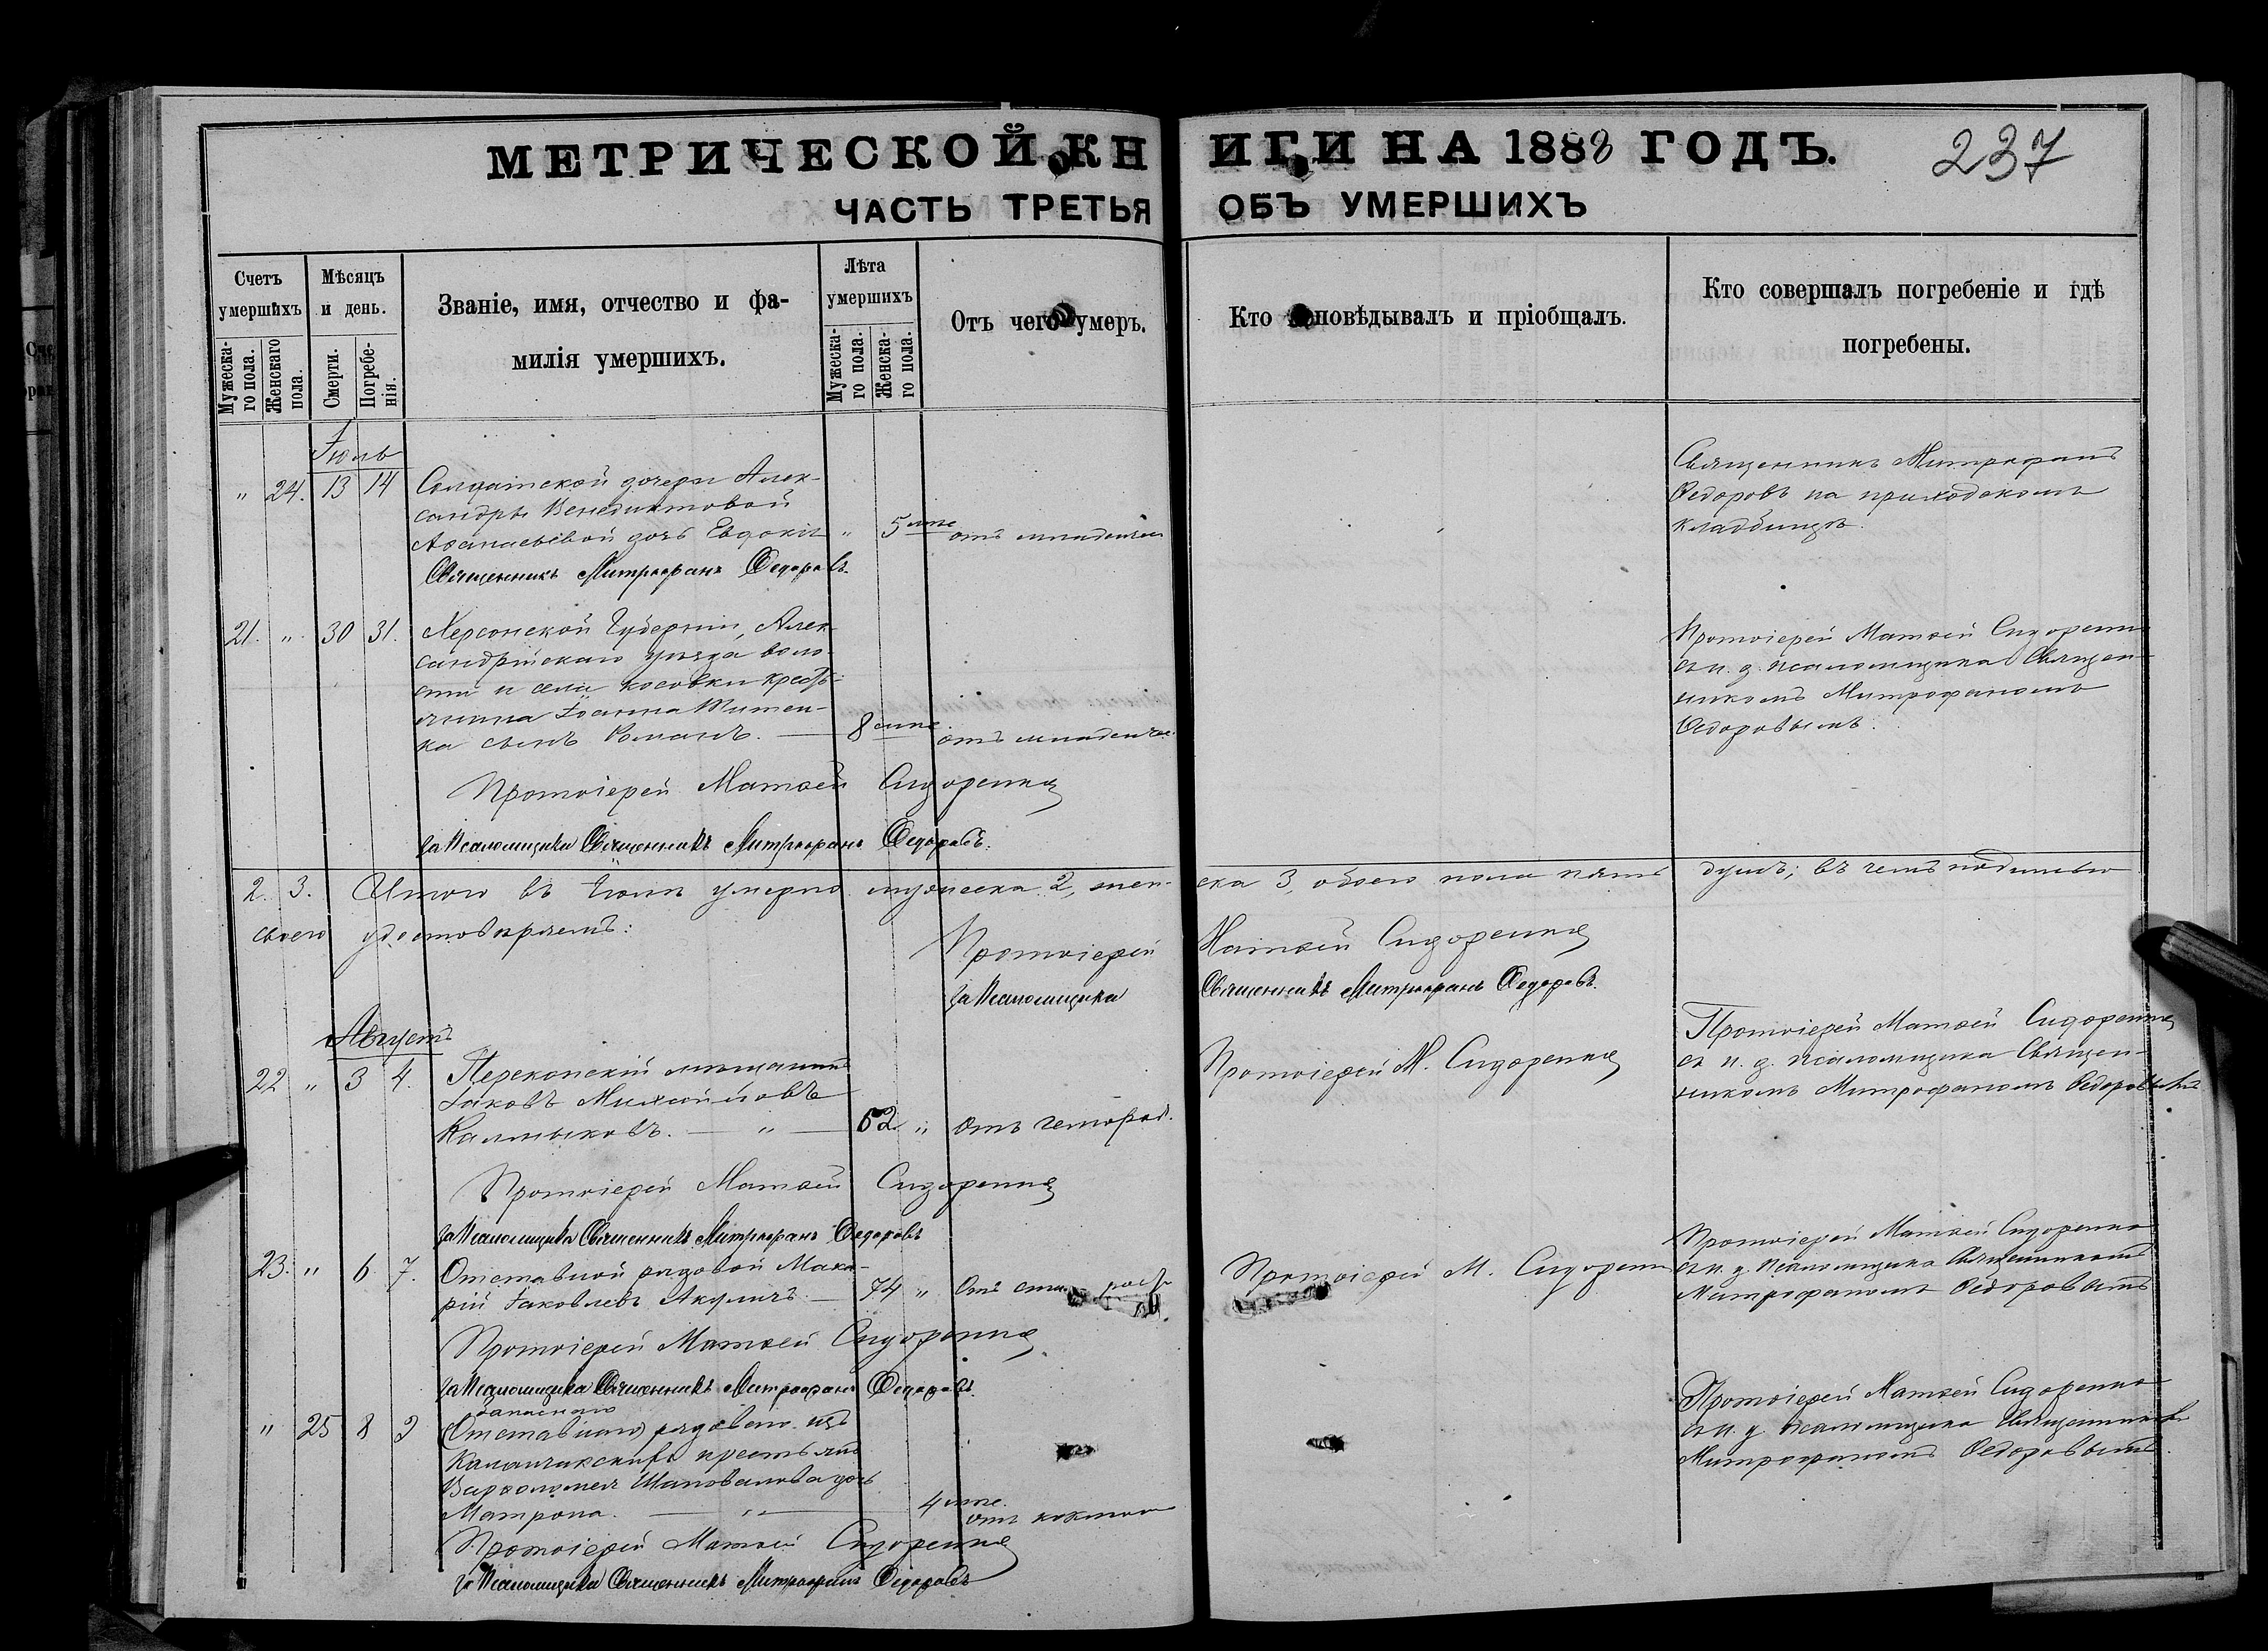 МЕТРИЧЕСКОЙ КНИГИ НА 1888 ГОДЪ.
237
ЧАСТЬ ТРЕТЬЯ ОБЪ УМЕРШИХЪ
Счетъ умершихъ
Мужеска-го пола.
Женскаго пола.
Мѣсяцъ и день.
Смерти.
Погребе-нія.
Званіе, имя, отчество и фа-
милія умершихъ.
Лѣта умершихъ
Мужеска-го пола.
Женска-го пола.
Отъ чего умеръ.
Кто исповѣдывалъ и пріобщалъ.
Кто совершалъ погребеніе и гдѣ
погребены.
Іюль
" 24. 13 14
Солдатской дочери Алек-
сандры Венедиктовой
Аѳанасьевой дочь Евдокія " 5 мце отъ младенчес
Священникъ Митрофанъ Ѳедоровъ.
Священникъ Митрофанъ
Ѳедоровъ на приходскомъ
кладбищѣ.
21. " 30 31.
Херсонской Губерніи, Алек-
сандрійскаго уѣзда воло-
сти и села Косовки кресть-
янина Іоанна
ка сынъ Романъ. — 8 мце отъ младенчес
Протоіерей Матѳей Сидоренко
За Псаломщика Священникъ Митрофанъ Ѳедоровъ.
Протоіерей Матѳей Сидоренко
съ и. д. псаломщика Священ-
никомъ Митрофаномъ
Ѳедоровымъ.
2. 3. Итого въ Іюлѣ умерло мужеска 2, жен-ска 3, обоего пола пять душъ; въ чемъ подписью
своего удостовѣряемъ:
Протоіерей Матѳей Сидоренко
За Псаломщика Священникъ Митрофанъ Ѳедоровъ.
Августъ
22 " 3 4.
Перекопскій мѣщанинъ
Іаковъ Михайловъ
Калмыковъ. — " — 62. " Отъ геморой.
Протоіерей М. Сидоренко
Протоіерей Матѳей Сидоренко
съ и. д. псаломщика Священ-
никомъ Митрофаномъ Ѳедоровымъ
Протоіерей Матѳей Сидоренко
За Псаломщика Священникъ Митрофанъ Ѳедоровъ
23. " 6. 7.
Отставной рядовой Мака-
рій Іаковлевъ Акуличъ — 74 " Отъ ста рости
Протоіерей М. Сидоренко
Протоіерей Матѳей Сидоренко
съ и. д. псаломщика Священникомъ
Митрофаномъ Ѳедоровымъ
Протоіерей Матѳей Сидоренко
За Псаломщика Священникъ Митрофанъ Ѳедоровъ.
запаснаго
" 25 8 9
(Отставнаго) рядоваго изъ
Каланчакскихъ крестьянъ
Варѳоломея Шаповалова дочь
Матрона. — " — 4 мце. отъ коклюша
Протоіерей Матѳей Сидоренко
съ и. д. псаломщика Священникомъ
Митрофаномъ Ѳедоровымъ.
Протоіерей Матѳей Сидоренко
За Псаломщика Священникъ Митрофанъ Ѳедоровъ